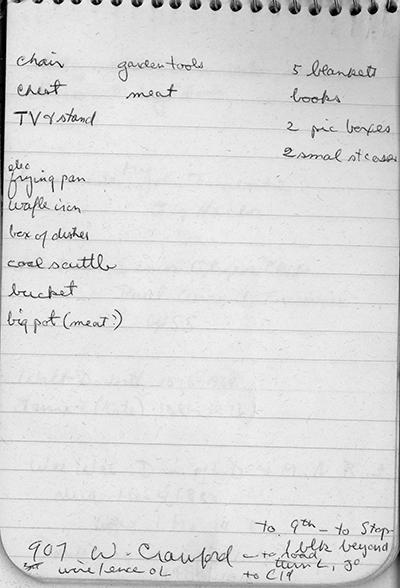 chair garden tools 5 blankets
chest meat books
TV & stand 2 pic boxes
2 smal st cases
elec
frying pan
wafle iron
box of dishes
coal scuttle
bucket
big pot (meat?)
to 9th - to Stop
1 blk beyond
907 W. Crawford - to load
turn L, go
wire fence on L to Cld